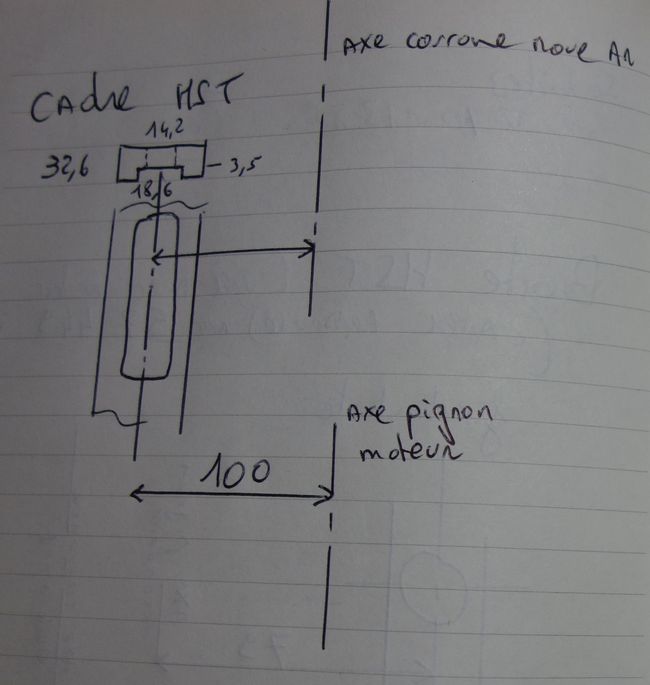 Axe couronne roue AR
Cadre HST
14,2
32,6
3,5
18,6
Axe pignon
moteur
100